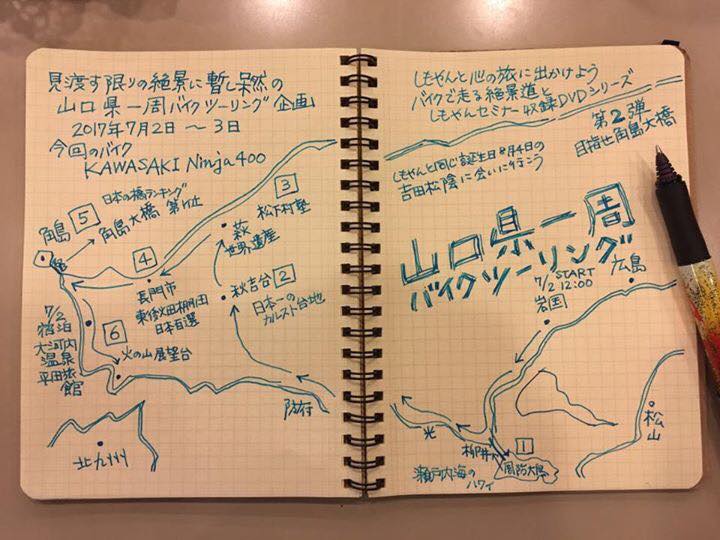 見渡す限りの絶景に暫し呆然の
山口県一周バイクツーリング企画
2017年7月2日 ～ 3日
今回のバイク
KAWASAKI Ninja400
日本の橋ランキング
角島大橋 第1位
5
角島
3
松下村塾
萩
世界遺産
4
長門市
東後畑棚田
日本百選
秋吉台
2
日本一の
カルスト台地
7/2
宿泊
大河内
温泉
平田旅館
6
火の山展望台
防府
北九州
しもやんと心の旅に出かけよう
バイクで走る絶景道と
しもやんセミナー収録DVDシリーズ
第2弾
目指せ角島大橋
しもやんと同じ誕生日8月4日の
吉田松陰に会いに行こう
山口県一周
バイクツーリング
7/2 START
12:00
広島
岩国
松山
光
柳井
1
周防大島
瀬戸内海の
ハワイ